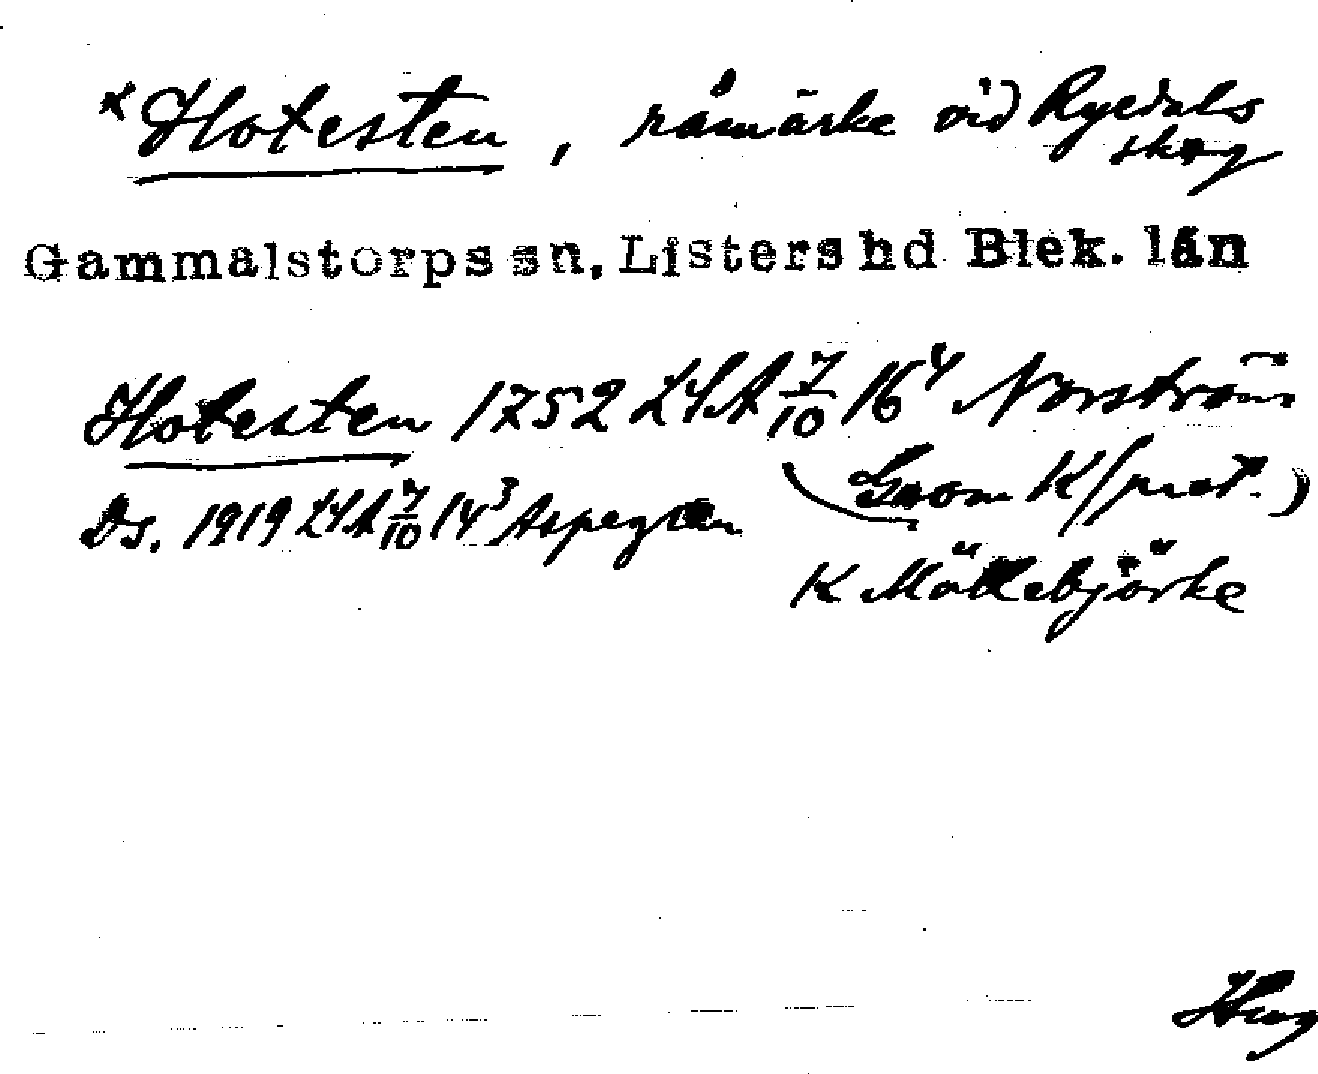 * Hotesten, råmärke vid Ryedals
skog
Gammalstorps sn, Listers hd Blek. län
Hotesten 1752 LSA 7/10 16⁴ Norström
(Geom K/prot.)
Ds. 1919 LSA 7/10 14³ Aspegren
K Möllebjörke